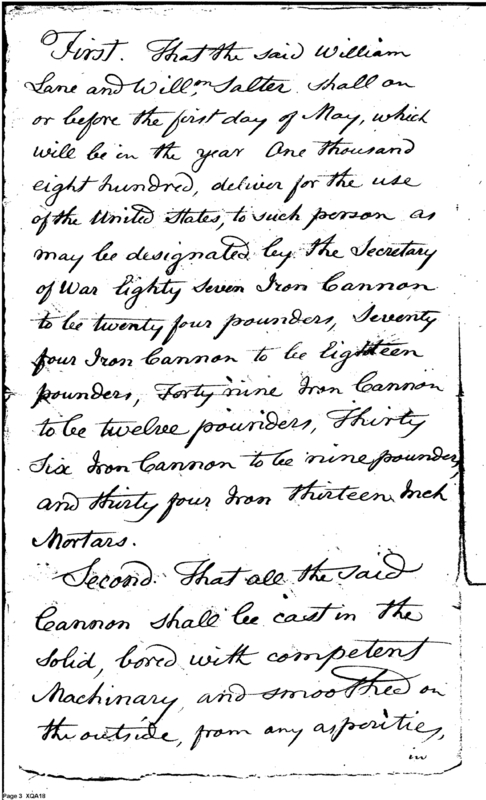 First. That the said William
Lane and Willm. Salter shall on
or before the first day of May, which
will be in the year One thousand
eight hundred, deliver for the use
of the United States, to such person as
may be designated by the Secretary
of War Eighty Seven Iron Cannon
to be twenty four pounders, Seventy
four Iron Cannon to be Eighteen
pounders, Forty nine Iron Cannon
to be twelve pounders, Thirty
Six Iron Cannon to be nine pounders,
and thirty four Iron thirteen Inch
Mortars.
Second. That all the said
Cannon shall be cast in the
Solid, bored with competent
Machinary, and smoothed on
the outside, from any asperities,
in
Page 3 XQA18